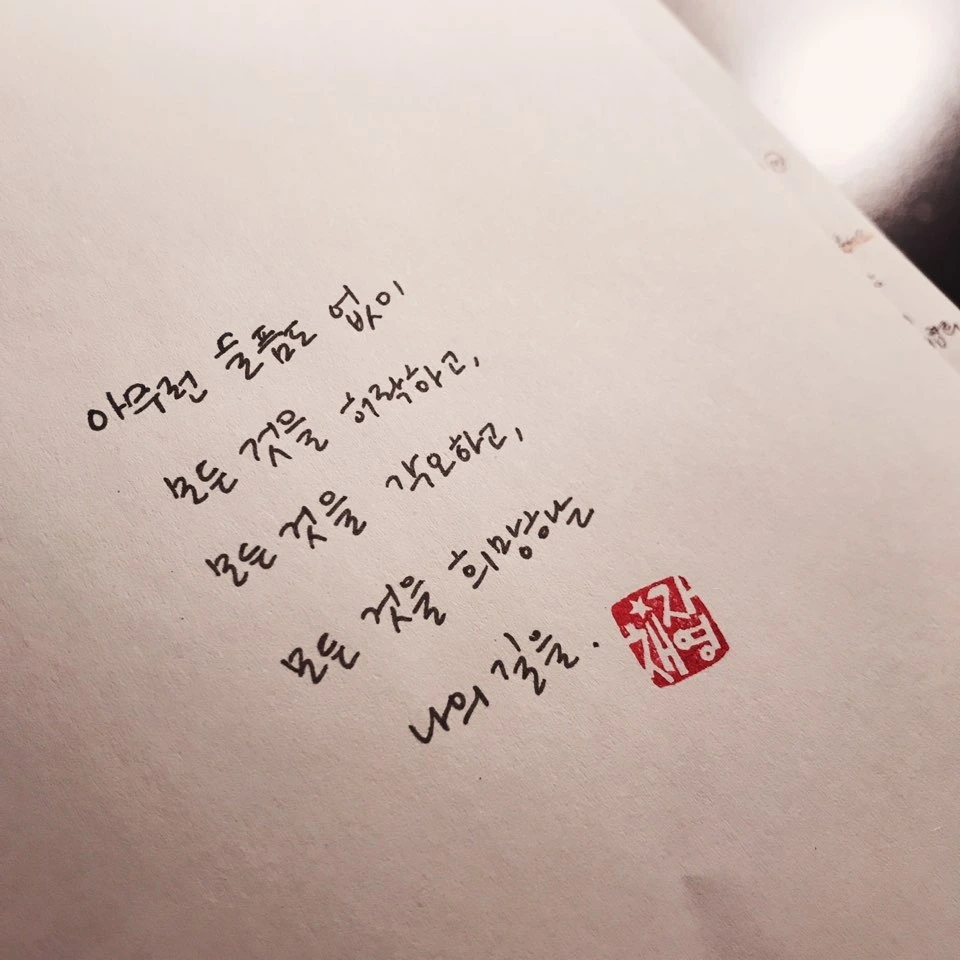 아무런 슬픔도 없이
모든 것을 허락하고,
모든 것을 각오하고,
모든 것을 희망하는
나의 길을.
자
채영